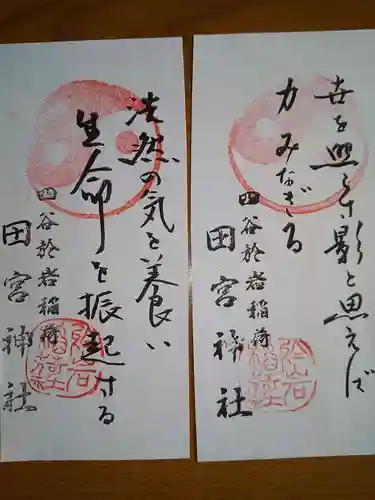 吉を照らす影と思えば
力みなぎる
四谷於岩稲荷
田宮神社
浩然の気を養い
生命を振起する
四谷於岩稲荷
田宮神社
於岩稲荷